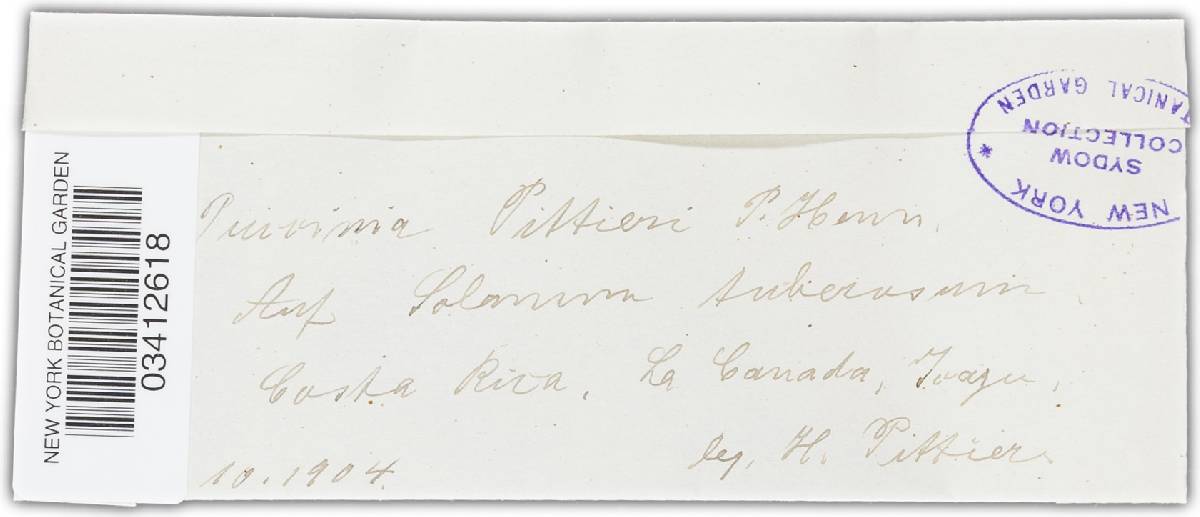 Puccinia Pittieri P. Henn.
Auf Solanum tuberosum.
Costa Rica, La Canada,
leg. H. Pittier.
10. 1904.
NEW YORK BOTANICAL GARDEN
03412618
TANICAL GARDEN
SYDOW
COLLECTION
NEW YORK *